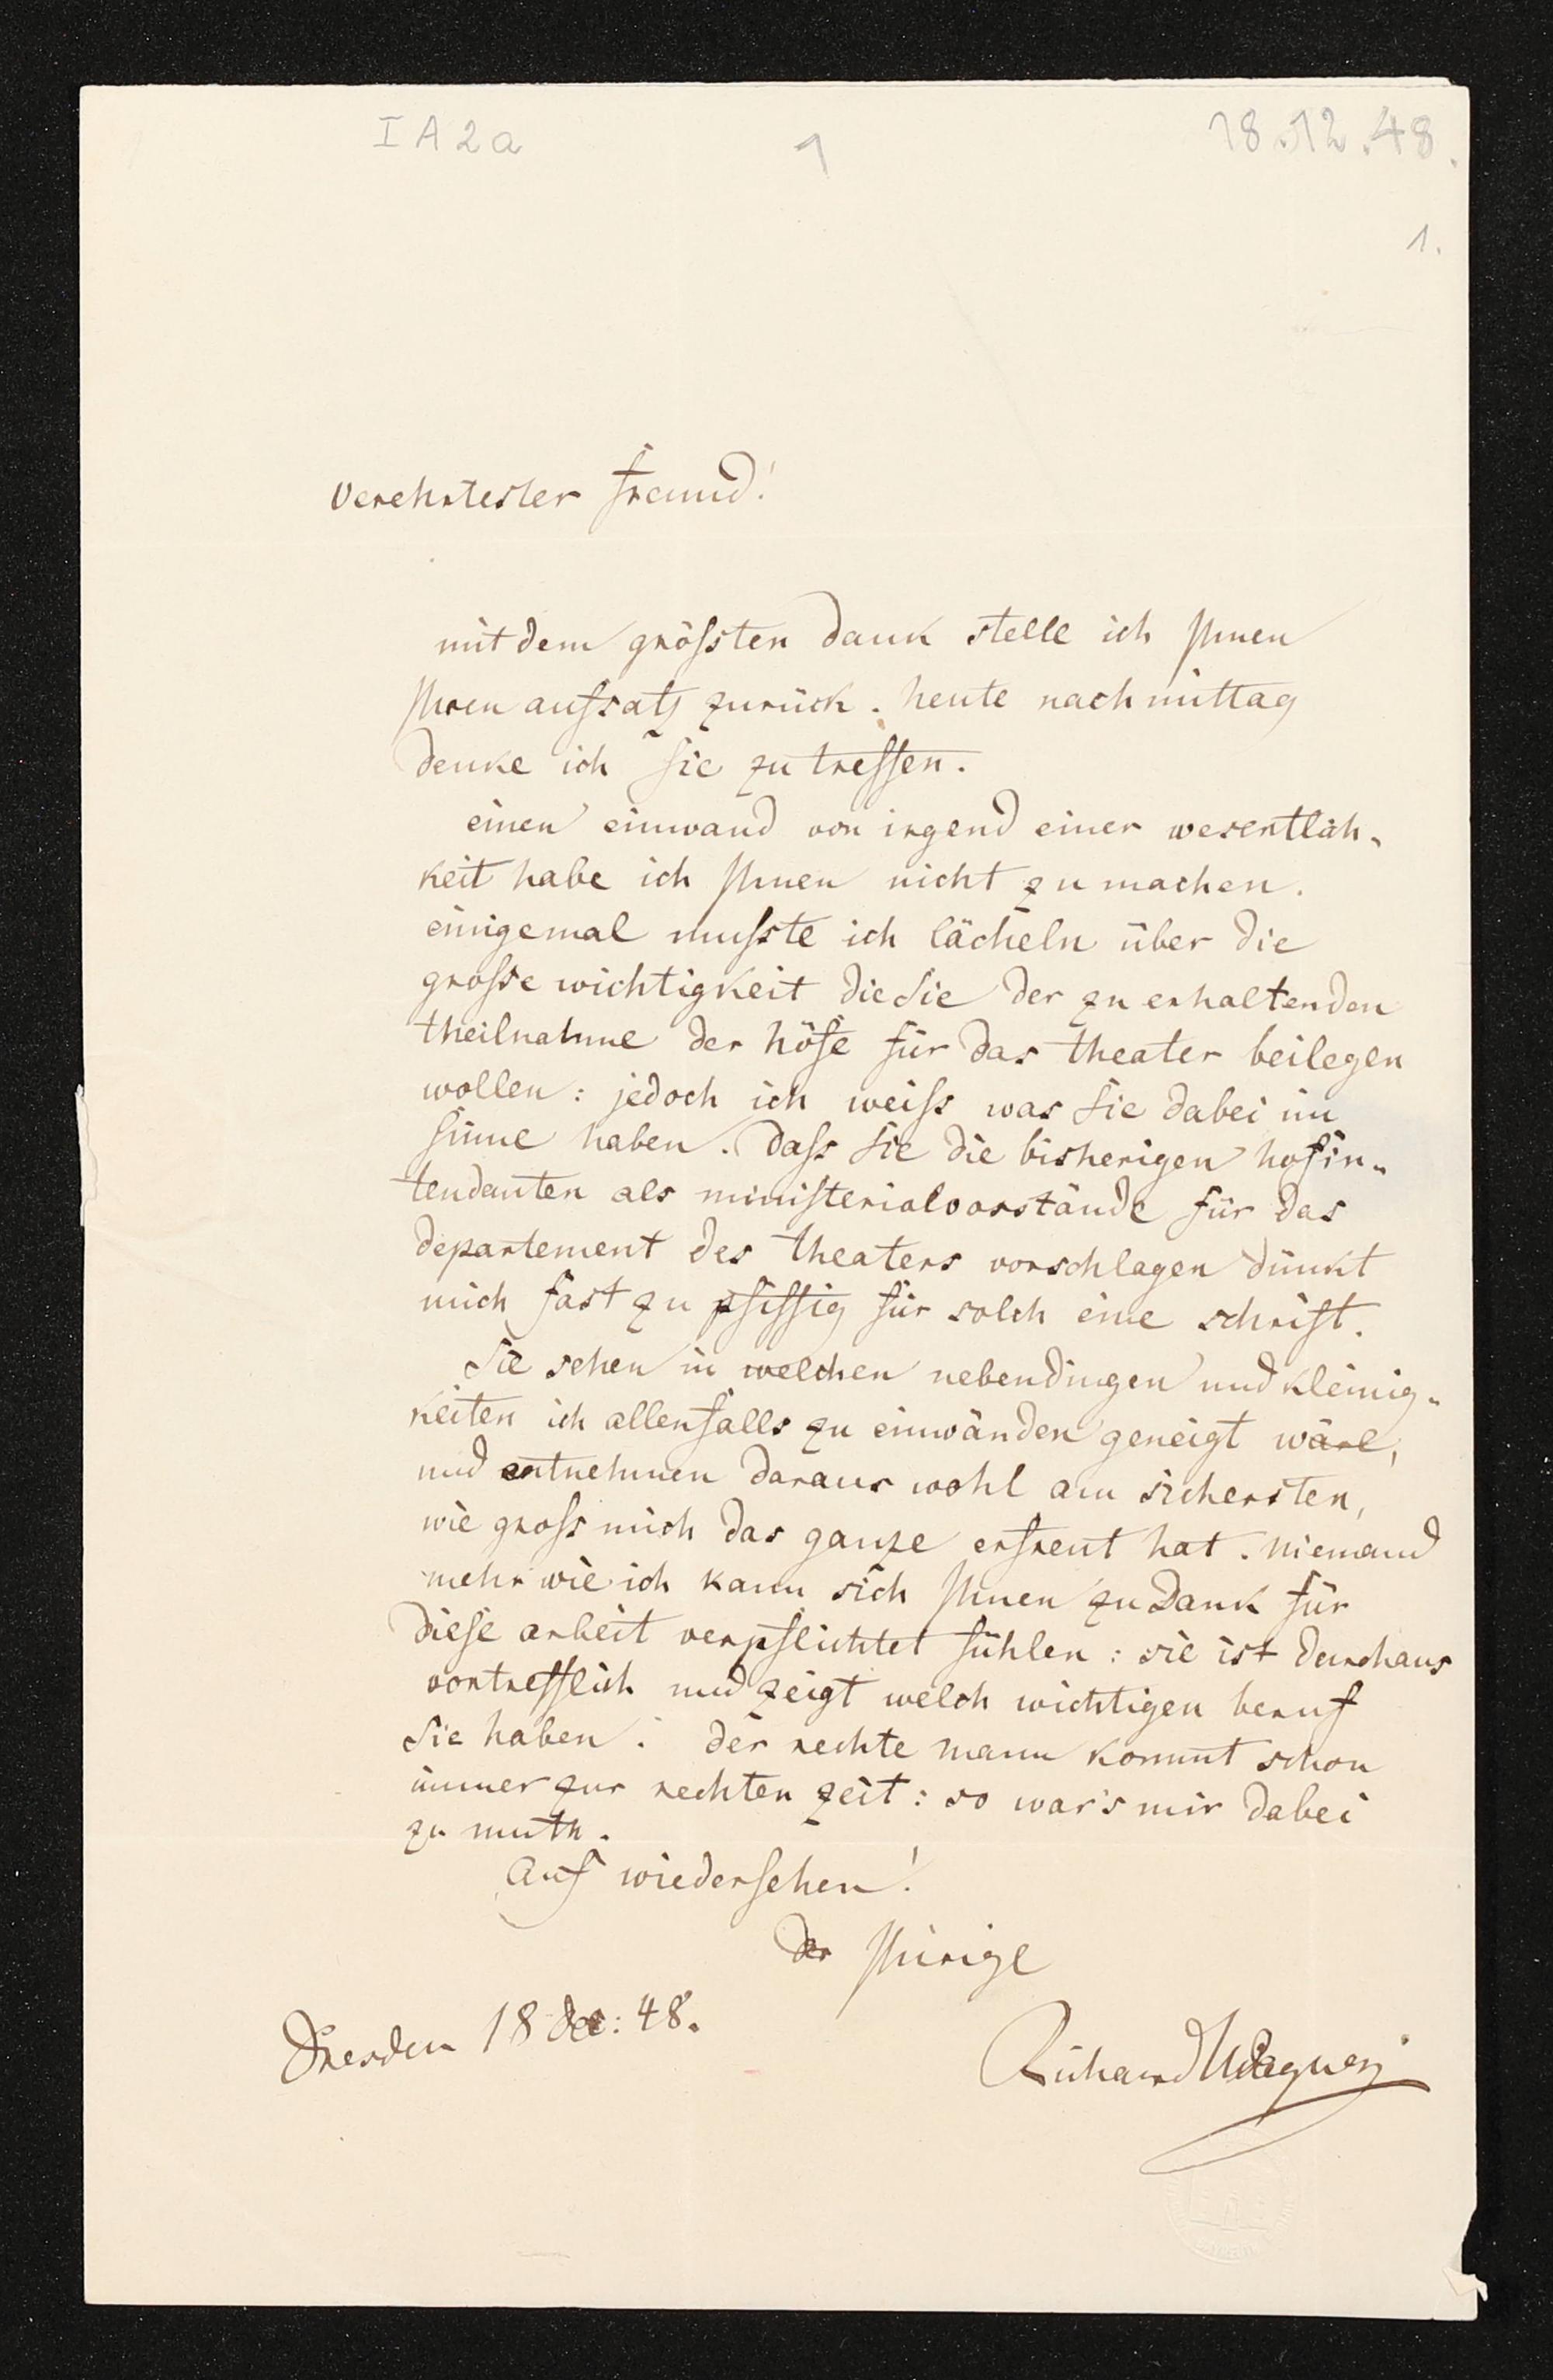 I A 2 a
1
18.12.48.
1.
Verehrtester freund!
mit dem grössten dank stelle ich Ihnen
Ihren aufsatz zurück. heute nachmittag
denke ich Sie zu treffen.
einen einwand von irgend einer wesentlich-
keit habe ich Ihnen nicht zu machen.
einigemal musste ich lächeln über die
grosse wichtigkeit die Sie der zu erhaltenden
theilnahme der höfe für das theater beilegen
wollen: jedoch ich weiss was Sie dabei im
sinne haben. dass Sie die bisherigen hofin-
tendanten als ministerialvorstände für das
departement des theaters vorschlagen dünkt
mich fast zu pfiffig für solch eine schrift.
Sie sehen in welchen nebendingen und kleinig-
keiten ich allenfalls zu einwänden geneigt wäre,
und entnehmen daraus wohl am sichersten,
wie gross mich das ganze erfreut hat. niemand
mehr wie ich kann sich Ihnen zu dank für
diese arbeit verpflichtet fühlen: sie ist durchaus
vortrefflich und zeigt welch wichtigen beruf
Sie haben. der rechte mann kommt schon
immer zur rechten zeit: so war's mir dabei
zu muth.
Auf wiedersehen!
der Ihrige
Dresden 18 dec: 48.
Richard Wagner